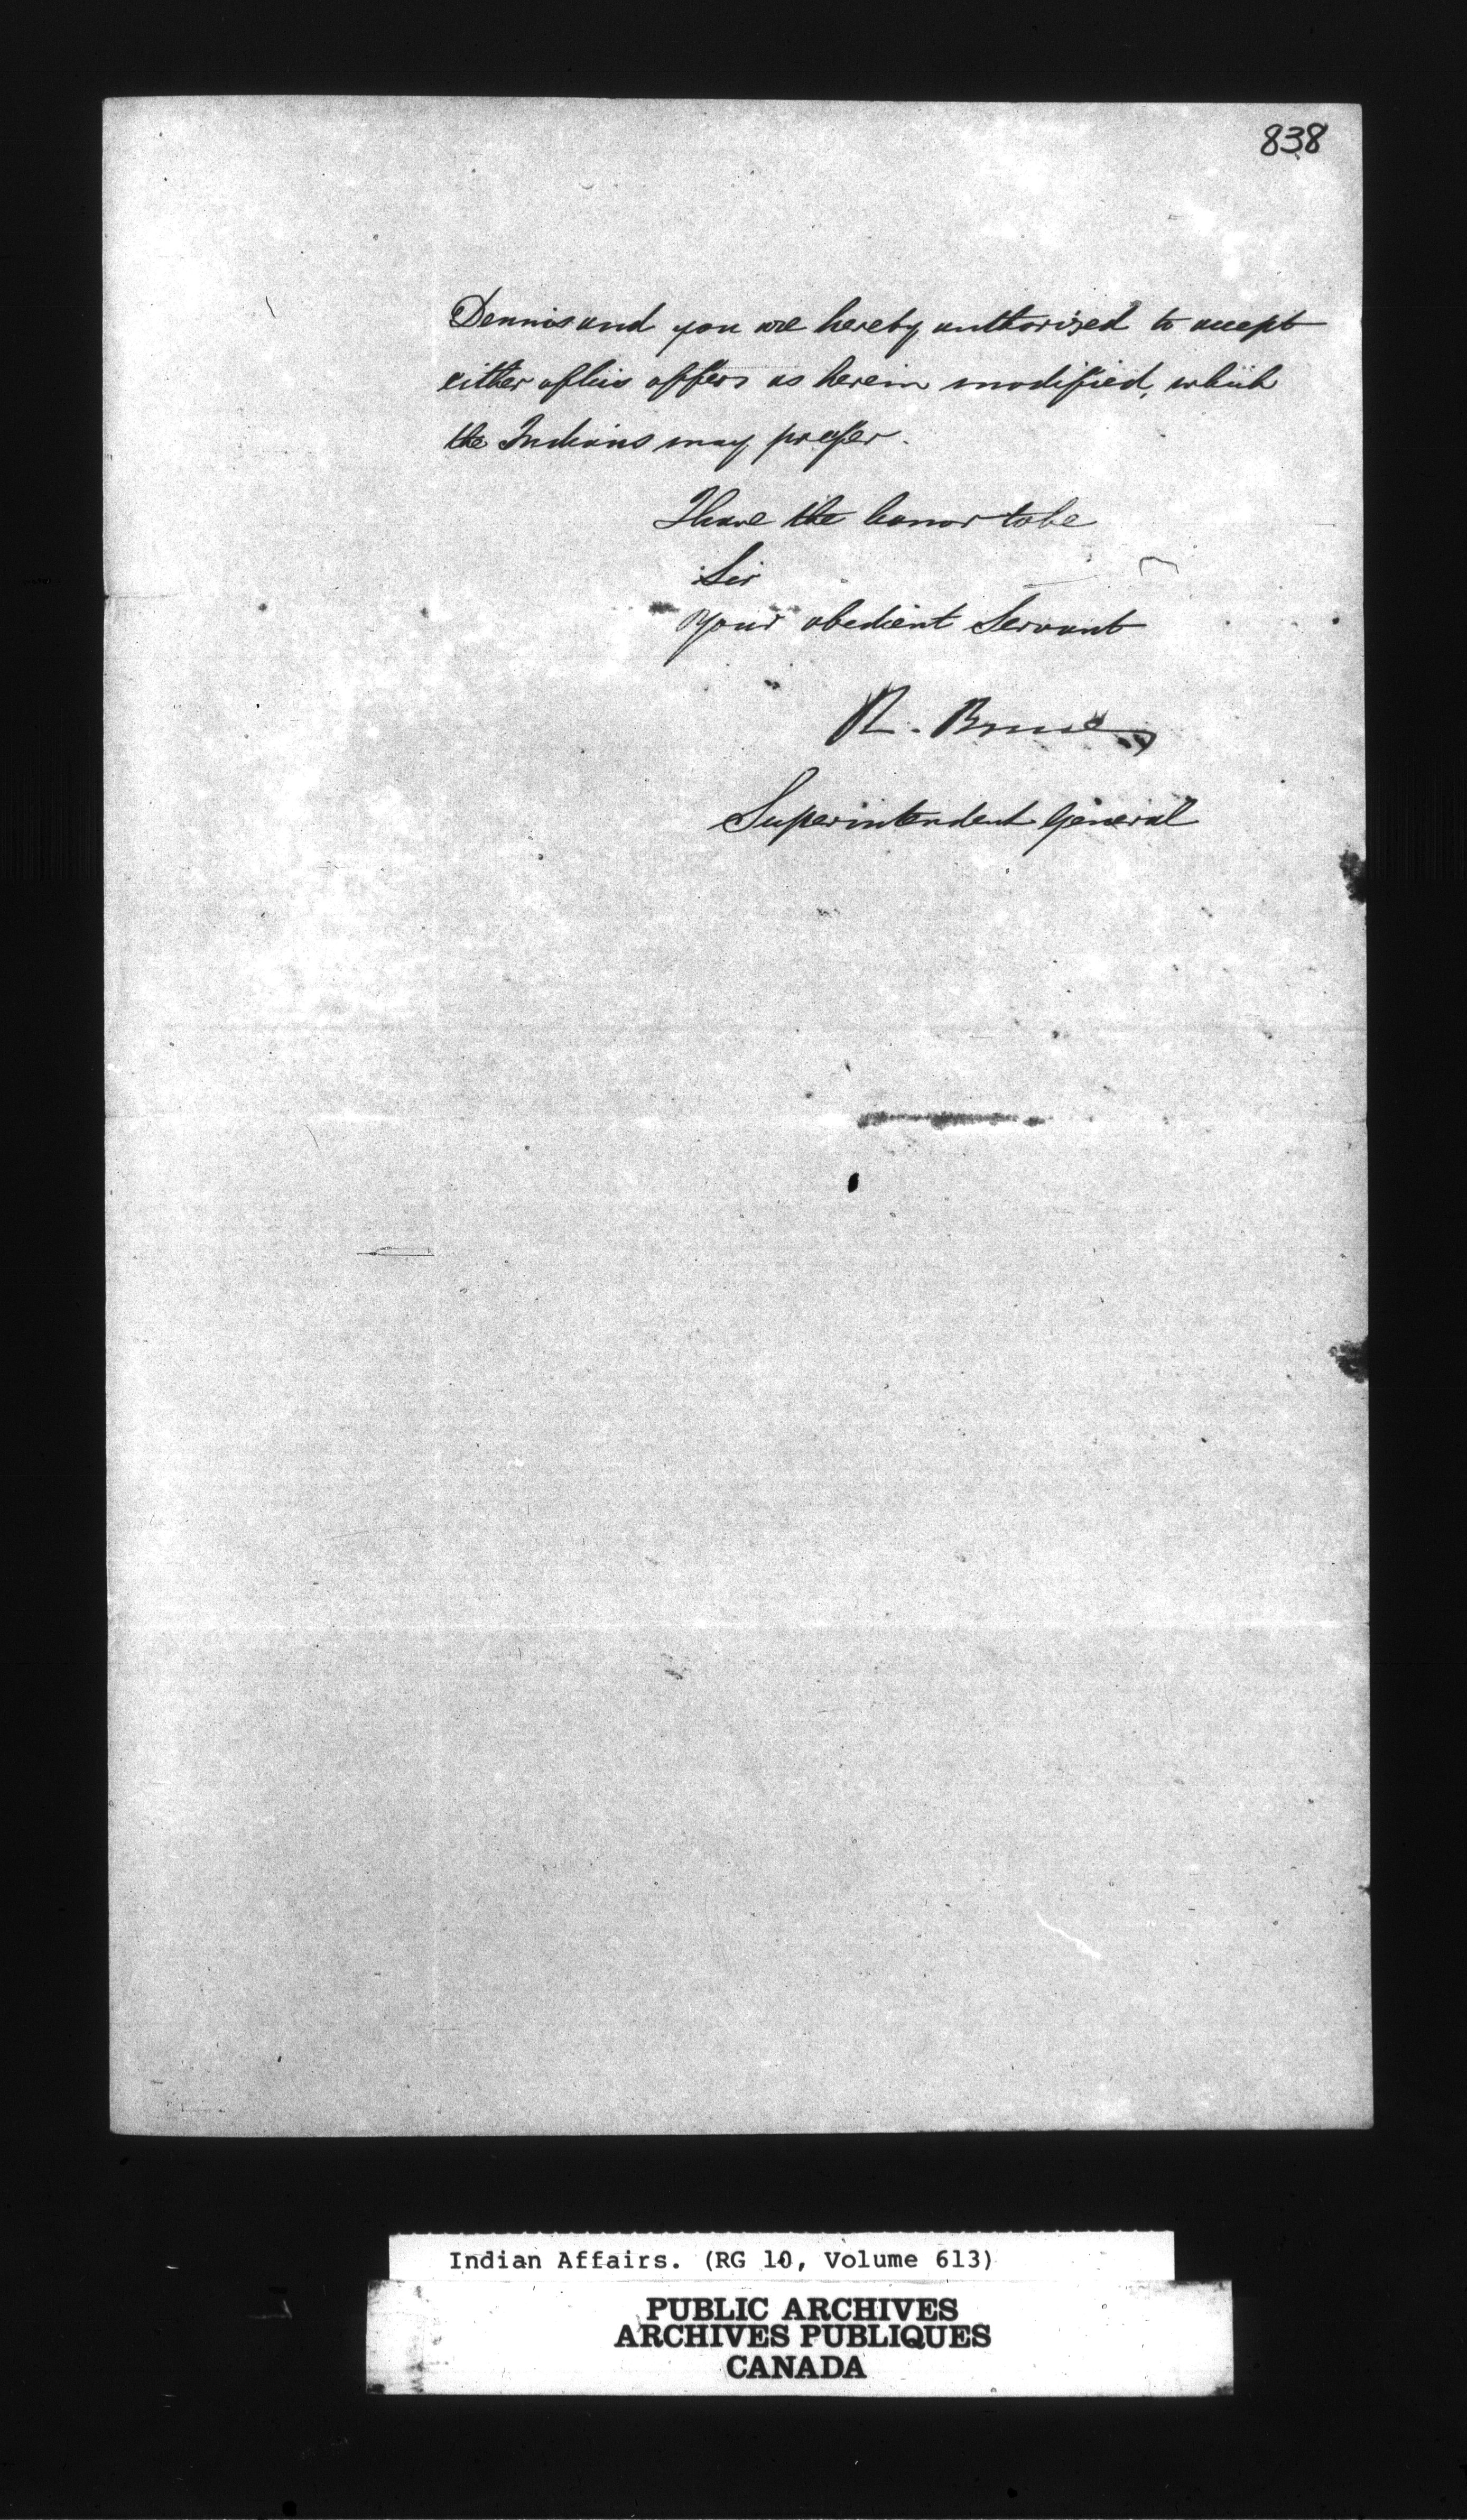 838
Dennis and you are hereby authorized to accept
either of his offers as herein modified, which
the Indians may prefer.
I have the honor to be
Sir
Your obedient Servant
R. Bruce
Superintendent General
Indian Affairs. (RG 10, Volume 613)
PUBLIC ARCHIVES
ARCHIVES PUBLIQUES
CANADA